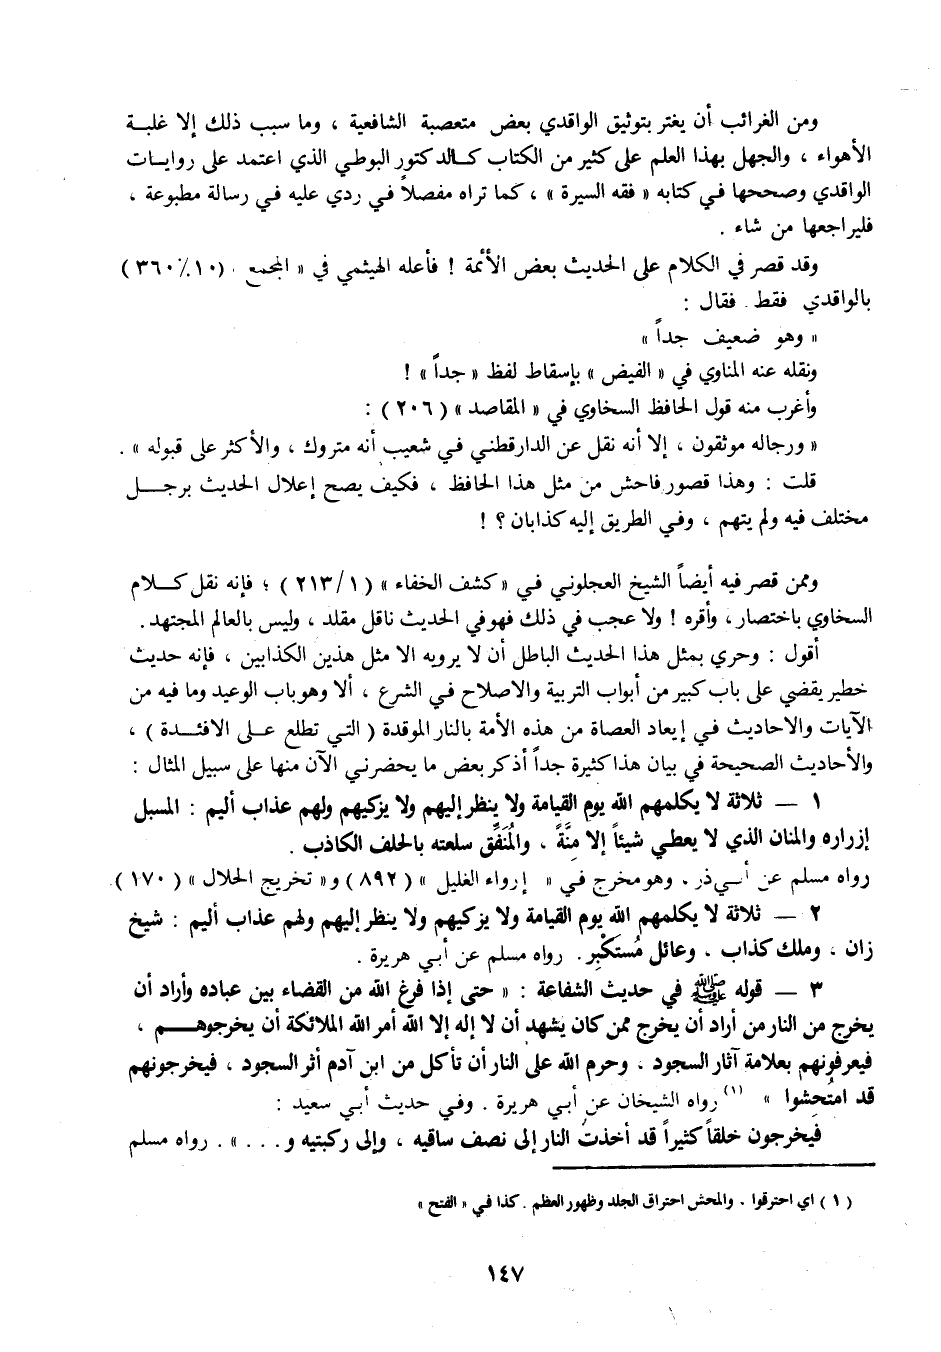 ومن الغرائب أن يغتر بتوثيق الواقدي بعض متعصبة الشافعية ، وما سبب ذلك إلا غلبة
الأهواء ، والجهل بهذا العلم على كثير من الكتاب كالدكتور البوطي الذي اعتمد على روايات
الواقدي وصححها في كتابه « فقه السيرة » ، كما تراه مفصلاً في ردي عليه في رسالة مطبوعة ،
فليراجعها من شاء .
وقد قصر في الكلام على الحديث بعض الأئمة ! فأعله الهيثمي في « المجمع . (١٠٪٣٦٠)
بالواقدي فقط . فقال :
« وهو ضعيف جداً »
ونقله عنه المناوي في « الفيض » بإسقاط لفظ « جداً » !
وأغرب منه قول الحافظ السخاوي في « المقاصد » ( ٢٠٦ ) :
« ورجاله موثقون ، إلا أنه نقل عن الدارقطني في شعيب أنه متروك ، والأكثر على قبوله » .
قلت : وهذا قصور فاحش من مثل هذا الحافظ ، فكيف يصح إعلال الحديث برجل
مختلف فيه ولم يتهم ، وفي الطريق إليه كذابان ؟ !
وممن قصر فيه أيضاً الشيخ العجلوني في « كشف الخفاء » ( ١/ ٢١٣ ) ؛ فإنه نقل كلام
السخاوي باختصار ، وأقره ! ولا عجب في ذلك فهو في الحديث ناقل مقلد ، وليس بالعالم المجتهد .
أقول : وحري بمثل هذا الحديث الباطل أن لا يرويه الا مثل هذين الكذابين ، فإنه حديث
خطير يقضي على باب كبير من أبواب التربية والاصلاح في الشرع ، ألا وهو باب الوعيد وما فيه من
الآيات والاحاديث في إيعاد العصاة من هذه الأمة بالنار الموقدة ( التي تطلع على الافئدة ) ،
والأحاديث الصحيحة في بيان هذا كثيرة جداً أذكر بعض ما يحضرني الآن منها على سبيل المثال :
١ — ثلاثة لا يكلمهم الله يوم القيامة ولا ينظر إليهم ولا يزكيهم ولهم عذاب أليم : المسبل
إزراره والمنان الذي لا يعطي شيئاً إلا مِنَّةً ، والمُنَفِّق سلعته بالحلف الكاذب .
رواه مسلم عن أبي ذر . وهو مخرج في « إرواء الغليل » ( ٨٩٢ ) و« تخريج الحلال » ( ١٧٠ ) .
٢ — ثلاثة لا يكلمهم الله يوم القيامة ولا يزكيهم ولا ينظر إليهم ولهم عذاب أليم : شيخ
زان ، وملك كذاب ، وعائل مُستَكْبِر . رواه مسلم عن أبي هريرة .
٣ — قوله ﷺ في حديث الشفاعة : « حتى إذا فرغ الله من القضاء بين عباده وأراد أن
يخرج من النار من أراد أن يخرج ممن كان يشهد أن لا إله إلا الله أمر الله الملائكة أن يخرجوهم ،
فيعرفونهم بعلامة آثار السجود ، وحرم الله على النار أن تأكل من ابن آدم أثر السجود ، فيخرجونهم
قد امتُحِشوا » (١) رواه الشيخان عن أبي هريرة . وفي حديث أبي سعيد :
فيخرجون خلقاً كثيراً قد أخذتُ النار إلى نصف ساقيه ، وإلى ركبتيه و . . . » . رواه مسلم
( ١ ) اي احترقوا . والمحش احتراق الجلد وظهور العظم . كذا في « الفتح »
١٤٧